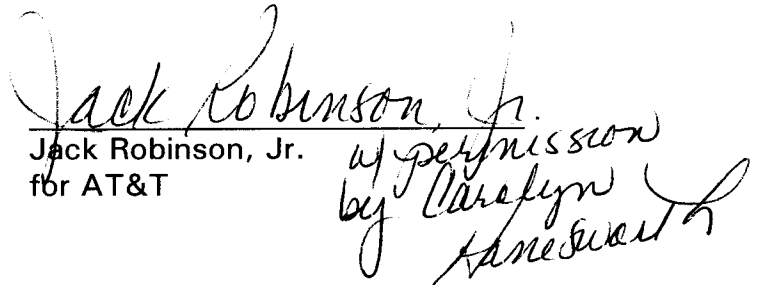 Jack Robinson, Jr.
Jack Robinson, Jr.
for AT&T
w/ permission
by Carolyn
Hanesworth